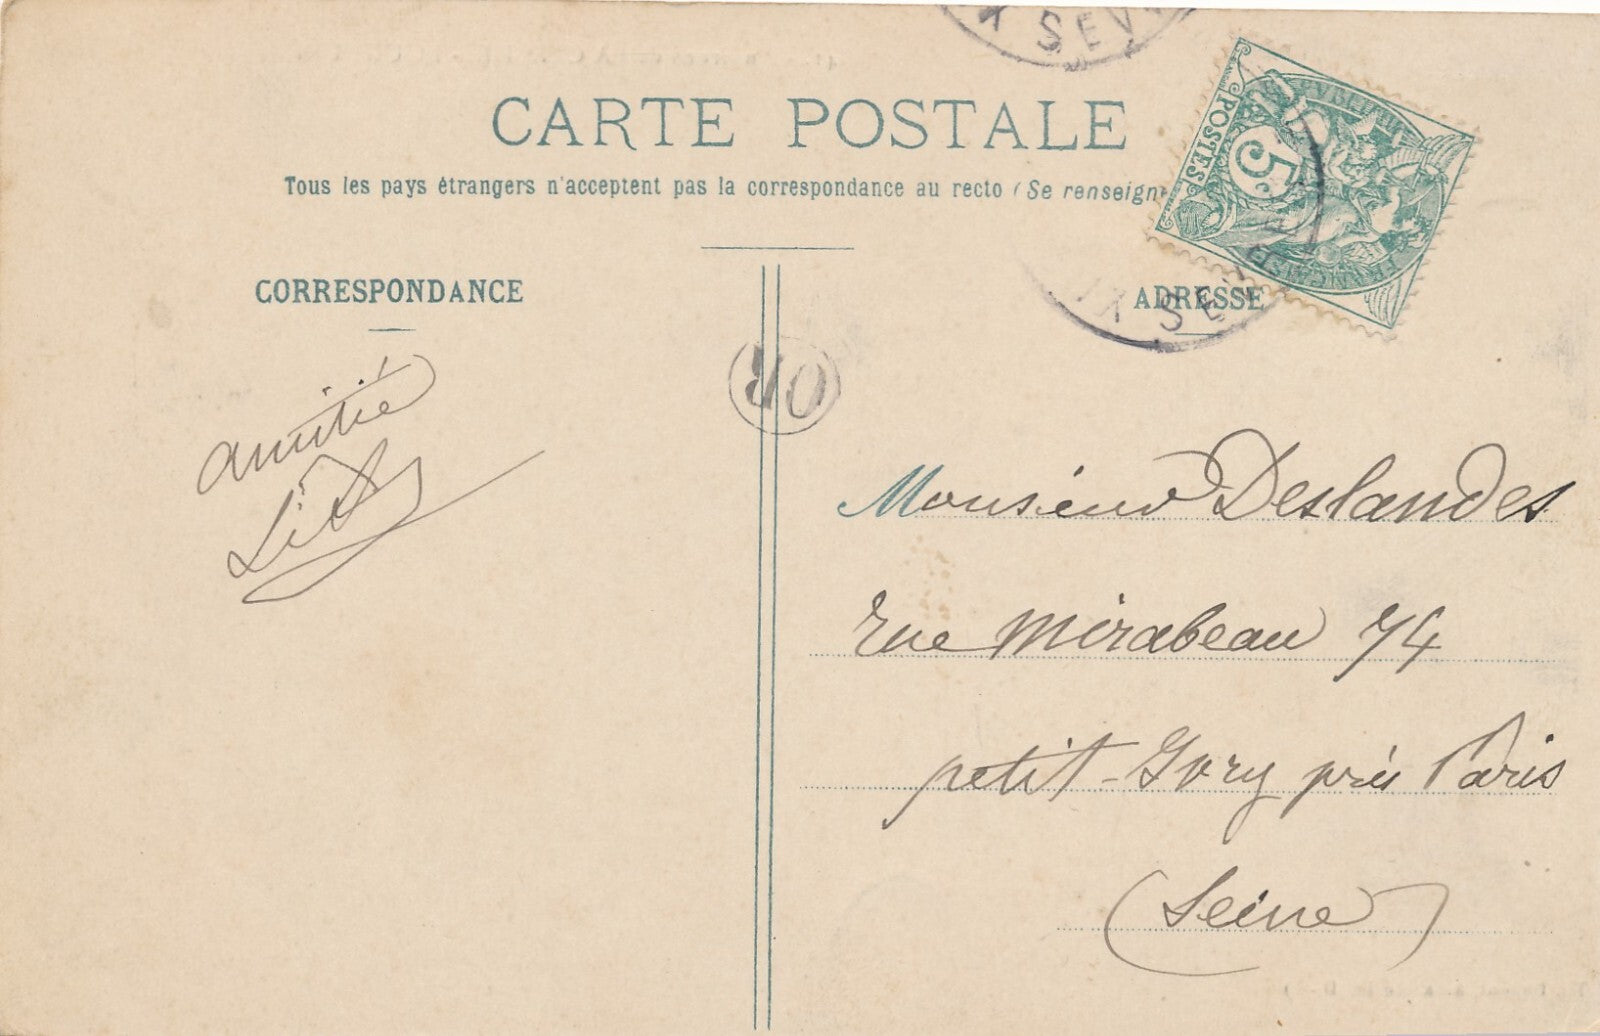 CARTE POSTALE
Tous les pays étrangers n'acceptent pas la correspondance au recto (Se renseign
CORRESPONDANCE
ADRESSE
POSTES
5c
FRANÇAISE
OR
amitié
Monsieur Deslandes
rue Mirabeau 74
petit-Ivry près Paris
(Seine)